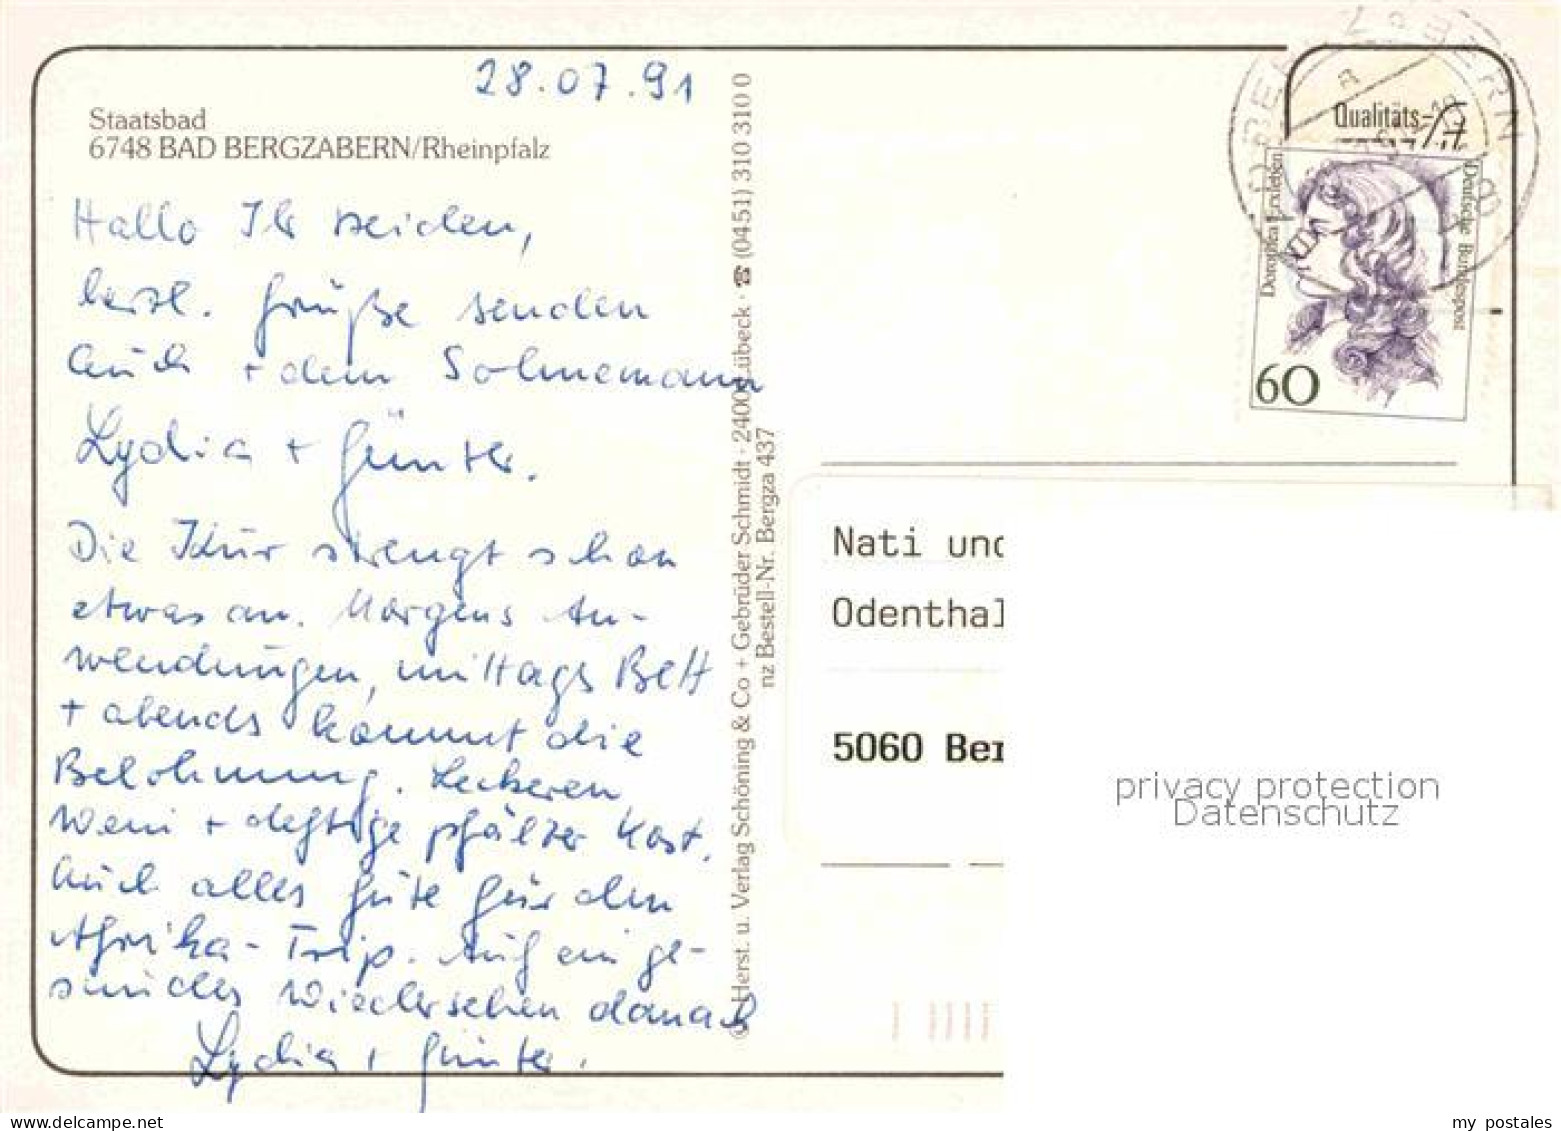 28.07.91
Staatsbad
6748 BAD BERGZABERN/Rheinpfalz
Hallo Ihr beiden,
herzl. Grüße senden
Euch + dem Sohnemann
Lydia + Günter.
Die Kur strengt schon
etwas an. Morgens An-
wendungen, mittags Bett
+ abends kommt die
Belohnung. Leckeren
Wein + deftige pfälzer Kost.
Euch alles Gute für den
Afrika-Trip. Auf ein ge-
sundes Wiedersehen danach
Lydia + Günter.
Herst. u. Verlag Schöning & Co + Gebrüder Schmidt · 2400 Lübeck · ☎ (0451) 310 310 0
nz Bestell-Nr. Bergza 437
Qualitäts-
Dorothea Erxleben
Deutsche Bundespost
60
Nati und
Odenthal
5060 Ber
privacy protection
Datenschutz
my postales